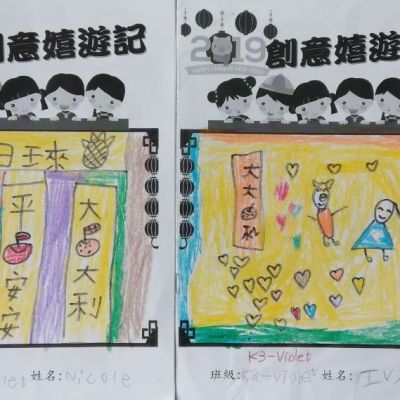 創意嬉遊記
旺來
大大利
平安安
let 姓名: Nicole
2019
HAPPY CHINESE NEW YEAR
創意嬉遊
大大
K3-Violet
班級: K3-Violet 姓名: IV